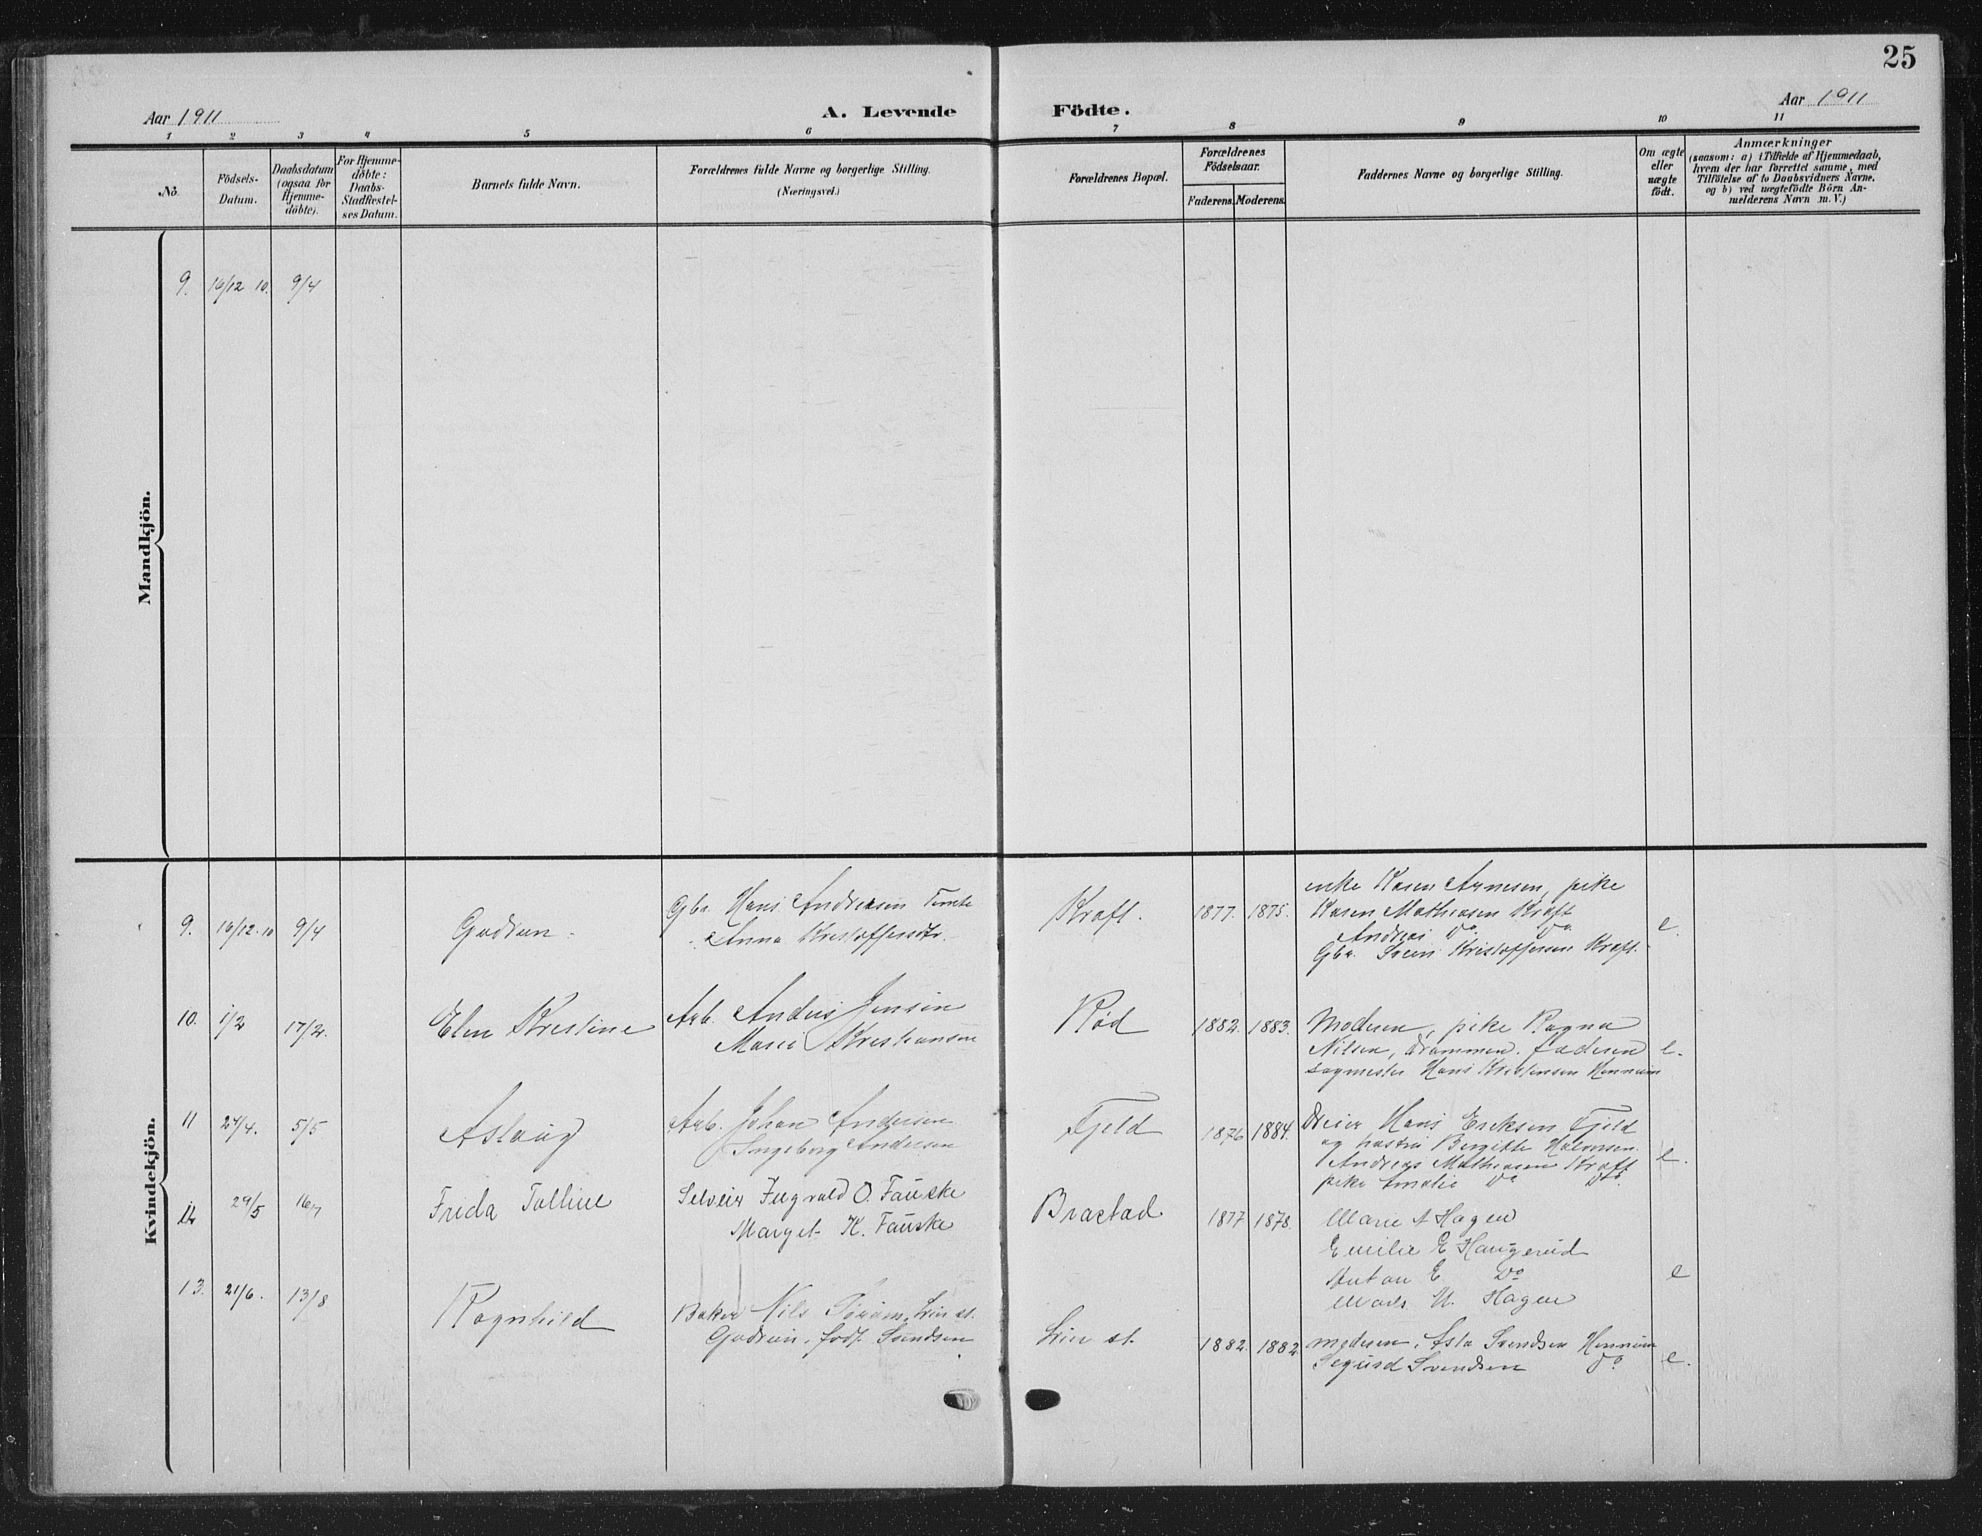 25
Aar 1911
A. Levende Födte.
Aar 1911
1 2 3 4 5 6 7 8 9 10 11
No.
Födsels-
Datum.
Daabsdatum
(ogsaa for
Hjemme-
döbte).
For Hjemme-
döbte:
Daabs-
Stadfæstel-
ses Datum.
Barnets fulde Navn.
Forældrenes fulde Navne og borgerlige Stilling.
(Næringsvei.)
Forældrenes Bopæl.
Forældrenes
Födselsaar.
Faderens. Moderens.
Faddernes Navne og borgerlige Stilling.
Om ægte
eller
uægte
født.
Anmærkninger
(saasom: a) i Tilfælde af Hjemmedaab,
hvem der har forrettet samme, med
Tilföielse af to Daabsvidners Navne.
og b) ved uægtefödte Börn An-
melderens Navn m. V.)
Mandkjön.
9. 16/12 10. 9/4
Kvindekjön.
9. 16/12 10 9/4
Gudrun.
Gbr. Hans Andresen Tomte
Anna Kristoffersdtr.
Kraft.
1877. 1875.
enke Karen Arnesen, pike
Karen Mathiasen Kraft
Andreas Do. Do.
Gbr. Svein Kristoffersen Kraft.
e.
10. 1/2 17/2.
Elen Kristine
Arb. Anders Jensen
Marie Kristiansen
Rød
1882. 1883.
Moderen, pike Ragna
Nilsen, Drammen. faderen
sagmester Hans Kristensen Hennum
e.
11 24/4. 5/5
Aslaug
Arb. Johan Andersen
Ingeborg Andersen
Fjeld
1876 1884.
Dreier Hans Eriksen Fjeld
og hustru Birgitte Halvorsen.
Andreas Mathiasen Kraft
pike Amalie Do Do.
e.
12 29/5 16/7
Frida Talline
Selveier Ingvald O. Fauske
Marget K. Fauske
Brastad
1877 1878.
Marie A Hagen
Emilie E Haugerud
Anton E. Do
Mads N. Hagen
e
13. 21/6. 13/8
Ragnhild
Baker Nils Lier st.
Gudrun, født Svendsen
Lier st.
1882. 1882
moderen, Asta Svendsen Hennum
Sigurd Svendsen Do
e.